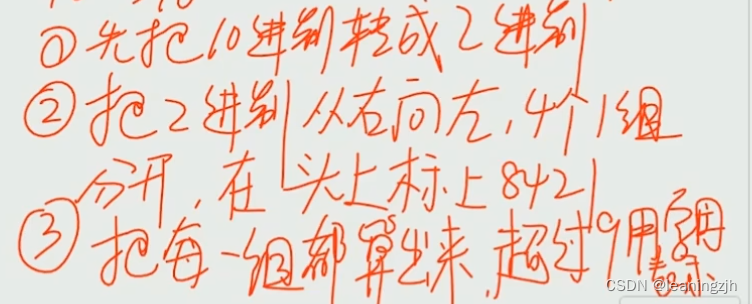 ①先把10进制转成2进制
②把2进制从右向左,4个1组
分开,在头上标上8421
③把每一组都算出来,超过9用字母
表示
CSDN @leaningzjh